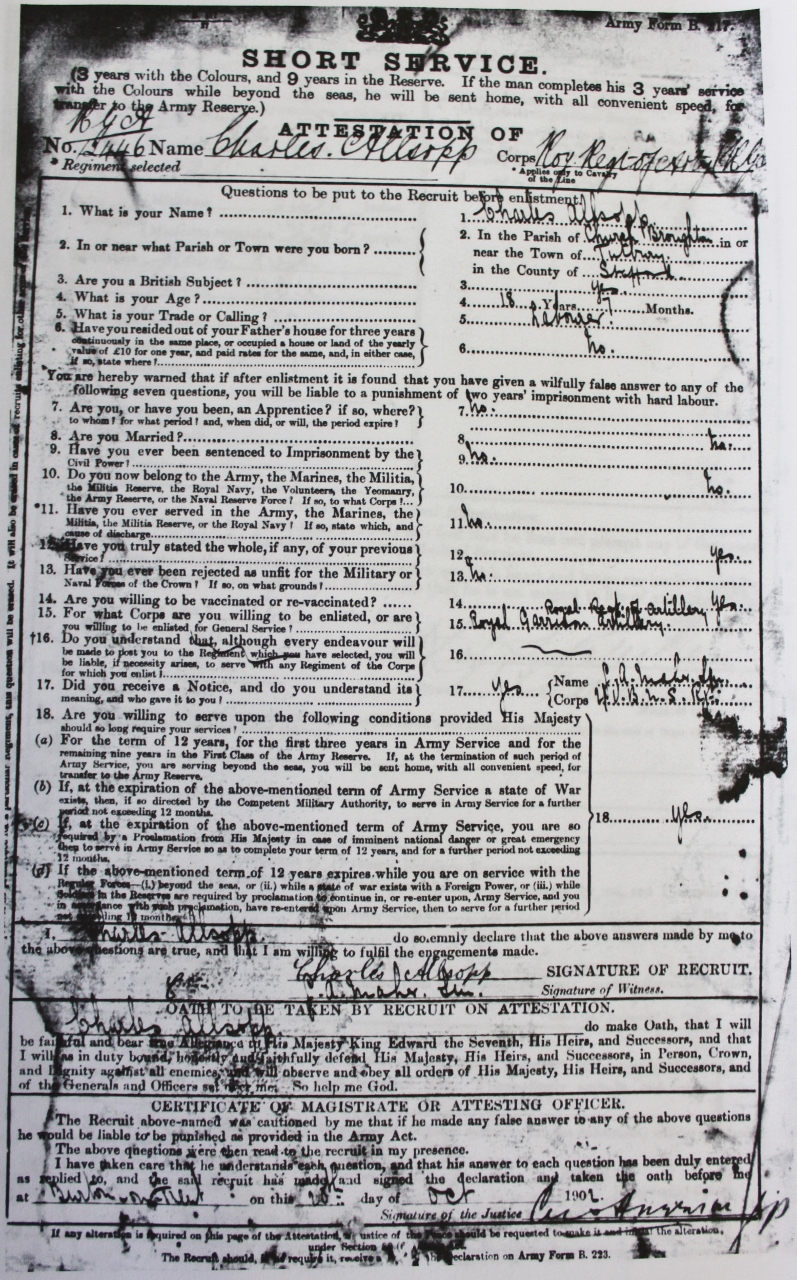 Army Form B. 217.
SHORT SERVICE.
(3 years with the Colours, and 9 years in the Reserve. If the man completes his 3 years' service
with the Colours while beyond the seas, he will be sent home, with all convenient speed, for
transfer to the Army Reserve.)
RGA
ATTESTATION OF
No. Name Charles. Allsopp Corps
* Regiment selected
* Applies only to Cavalry
of the Line
Questions to be put to the Recruit before enlistment.
1. What is your Name? 1. Charles Allsopp
2. In or near what Parish or Town were you born? 2. In the Parish of Church Broughton in or
near the Town of Tutbury
in the County of Stafford
3. Are you a British Subject? 3. Yes
4. What is your Age? 4. 18 Years 7 Months.
5. What is your Trade or Calling? 5. Labourer
6. Have you resided out of your Father's house for three years
continuously in the same place, or occupied a house or land of the yearly
value of £10 for one year, and paid rates for the same, and, in either case,
if so, state where? 6. No.
You are hereby warned that if after enlistment it is found that you have given a wilfully false answer to any of the
following seven questions, you will be liable to a punishment of two years' imprisonment with hard labour.
7. Are you, or have you been, an Apprentice? if so, where? 7. No.
to whom? for what period? and, when did, or will, the period expire?
8. Are you Married? 8. No.
9. Have you ever been sentenced to Imprisonment by the 9. No.
Civil Power?
10. Do you now belong to the Army, the Marines, the Militia,
the Militia Reserve, the Royal Navy, the Volunteers, the Yeomanry,
the Army Reserve, or the Naval Reserve Force? If so, to what Corps? 10. No.
*11. Have you ever served in the Army, the Marines, the
Militia, the Militia Reserve, or the Royal Navy? If so, state which, and
cause of discharge 11. No.
12. Have you truly stated the whole, if any, of your previous
Service? 12. Yes.
13. Have you ever been rejected as unfit for the Military or
Naval Forces of the Crown? If so, on what grounds? 13. No.
14. Are you willing to be vaccinated or re-vaccinated? 14. Yes.
15. For what Corps are you willing to be enlisted, or are
you willing to be enlisted for General Service? 15. Royal Regt of Artillery
Royal Garrison Artillery.
†16. Do you understand that, although every endeavour will
be made to post you to the Regiment which you have selected, you will
be liable, if necessity arises, to serve with any Regiment of the Corps
for which you enlist? 16.
17. Did you receive a Notice, and do you understand its
meaning, and who gave it to you? 17. Yes Name
Corps
18. Are you willing to serve upon the following conditions provided His Majesty
should so long require your services?
(a) For the term of 12 years, for the first three years in Army Service and for the
remaining nine years in the First Class of the Army Reserve. If, at the termination of such period of
Army Service, you are serving beyond the seas, you will be sent home, with all convenient speed, for
transfer to the Army Reserve.
(b) If, at the expiration of the above-mentioned term of Army Service a state of War
exists, then, if so directed by the Competent Military Authority, to serve in Army Service for a further
period not exceeding 12 months.
18. Yes.
(c) If, at the expiration of the above-mentioned term of Army Service, you are so
required by a Proclamation from His Majesty in case of imminent national danger or great emergency
then to serve in Army Service so as to complete your term of 12 years, and for a further period not exceeding
12 months.
(d) If the above-mentioned term of 12 years expires while you are on service with the
Regular Forces—(i.) beyond the seas, or (ii.) while a state of war exists with a Foreign Power, or (iii.) while
Soldiers in the Reserves are required by proclamation to continue in, or re-enter upon, Army Service, and you
in accordance with such proclamation, have re-entered upon Army Service, then to serve for a further period
not exceeding 12 months
I, Charles Allsopp do solemnly declare that the above answers made by me to
the above questions are true, and that I am willing to fulfil the engagements made.
Charles Allsopp SIGNATURE OF RECRUIT.
Signature of Witness.
OATH TO BE TAKEN BY RECRUIT ON ATTESTATION.
Charles Allsopp do make Oath, that I will
be faithful and bear true Allegiance to His Majesty King Edward the Seventh, His Heirs, and Successors, and that
I will, as in duty bound, honestly and faithfully defend His Majesty, His Heirs, and Successors, in Person, Crown,
and Dignity against all enemies, and will observe and obey all orders of His Majesty, His Heirs, and Successors, and
of the Generals and Officers set over me. So help me God.
CERTIFICATE OF MAGISTRATE OR ATTESTING OFFICER.
The Recruit above-named was cautioned by me that if he made any false answer to any of the above questions
he would be liable to be punished as provided in the Army Act.
The above questions were then read to the recruit in my presence.
I have taken care that he understands each question, and that his answer to each question has been duly entered
as replied to, and the said recruit has made and signed the declaration and taken the oath before me
at Burton on Trent on this 20th day of Oct 1902.
Signature of the Justice
If any alteration is required on this page of the Attestation, a Justice of the Peace should be requested to make it and initial the alteration,
under Section
The Recruit should, if he require it, receive a declaration on Army Form B. 223.